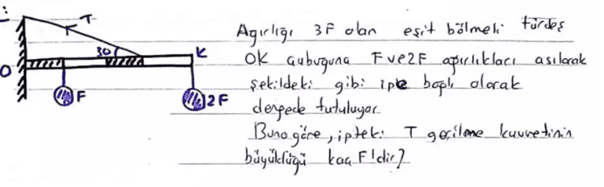 T
30
K
O
F
2F
Ağırlığı 3F olan eşit bölmeli türdeş
OK çubuğuna F ve 2F ağırlıkları asılarak
şekildeki gibi iple bağlı olarak
dengede tutuluyor
Buna göre, ipteki T gerilme kuvvetinin
büyüklüğü kaç F'dir?